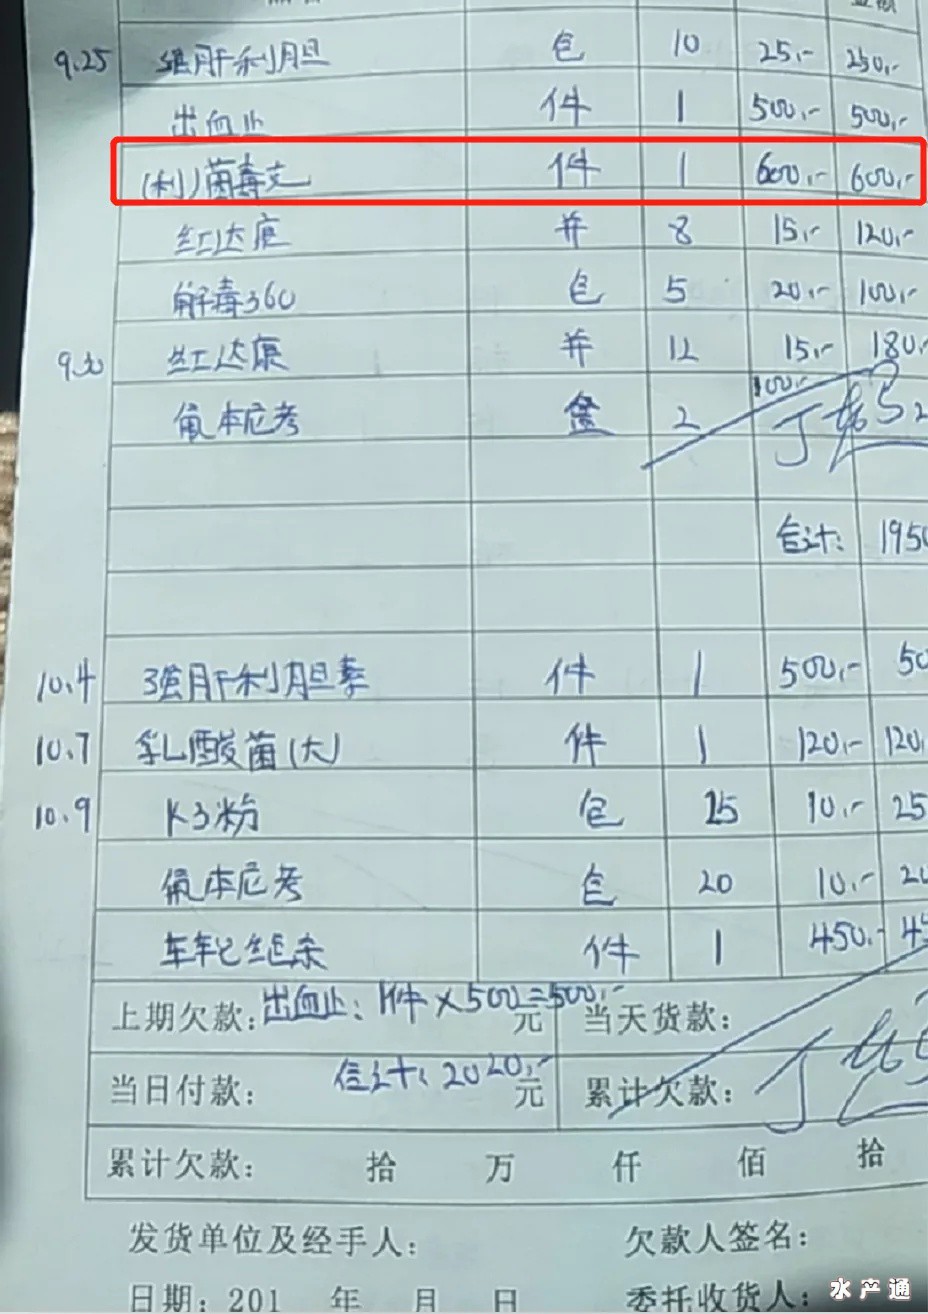 金额
9.25 强肝利胆 包 10 25.- 250.-
出血止 件 1 500.- 500.-
(利)菌毒克 件 1 600.- 600.-
红达康 并 8 15.- 120.-
解毒360 包 5 20.- 100.-
9.30 红达康 并 12 15.- 180.-
氟本尼考 盒 2 100.-
合计: 1950
10.4 强肝利胆素 件 1 500.- 50
10.7 乳酸菌(大) 件 1 120.- 120.
10.9 K3粉 包 25 10.- 25
氟本尼考 包 20 10.- 20
车轮绝杀 件 1 450.- 45
上期欠款: 出血止: 1件×500=500.- 元 当天货款:
当日付款: 合计: 2020.- 元 累计欠款:
累计欠款: 拾 万 仟 佰 拾
发货单位及经手人: 欠款人签名:
日期: 201 年 月 日 委托收货人:
水产通